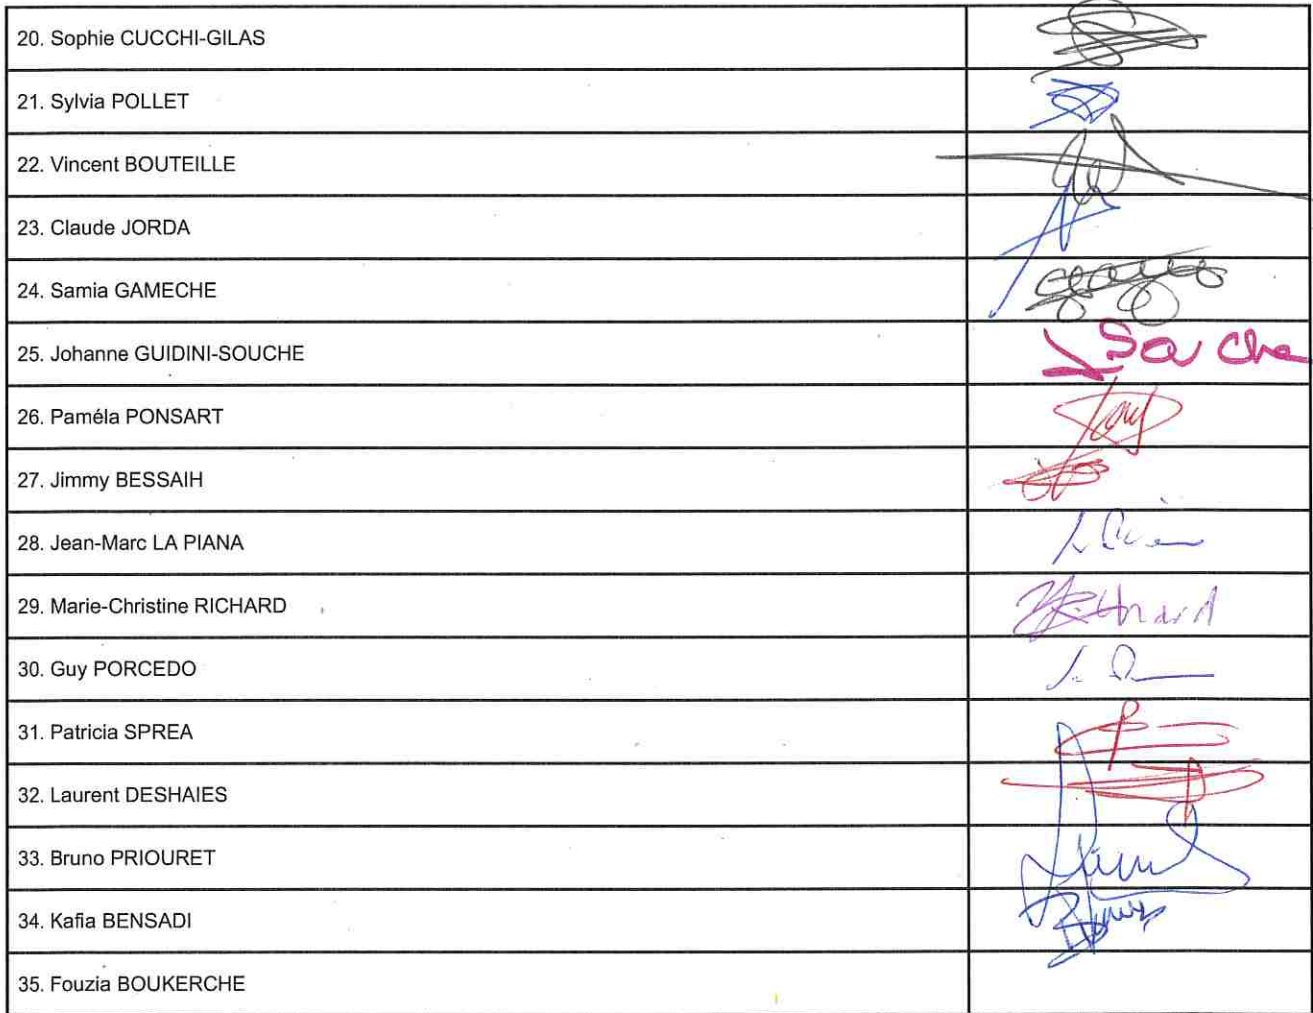 20. Sophie CUCCHI-GILAS
21. Sylvia POLLET
22. Vincent BOUTEILLE
23. Claude JORDA
24. Samia GAMECHE
25. Johanne GUIDINI-SOUCHE Souche
26. Paméla PONSART
27. Jimmy BESSAIH
28. Jean-Marc LA PIANA
29. Marie-Christine RICHARD
30. Guy PORCEDO
31. Patricia SPREA
32. Laurent DESHAIES
33. Bruno PRIOURET
34. Kafia BENSADI
35. Fouzia BOUKERCHE